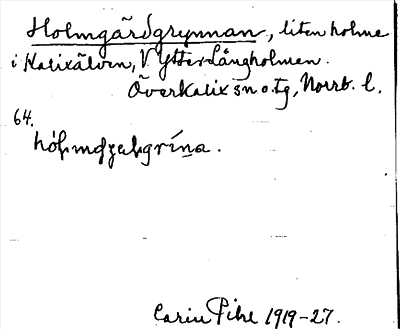 Holmgårdgrynnan, liten holme
i Kalixälven, V Ytter-Långholmen.
Överkalix sn o. tg, Norrb. l.
64.
Carin Pihl 1919-27.